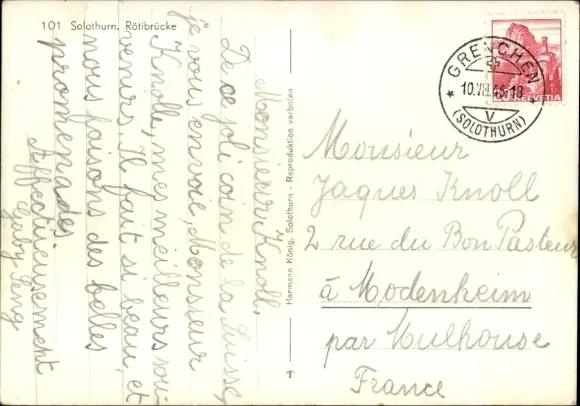 101 Solothurn. Rötibrücke
Monsieur Knoll,
De ce joli coin de la Suisse,
je vous envoie, Monsieur
Knoll, mes meilleurs sou-
venirs. Il fait si beau, et
nous faisons des belles
promenades.
Affectueusement
Guby Seng
Hermann König, Solothurn - Reproduktion verboten
HELVETIA
GRENCHEN
10.VII.46-18
V
(SOLOTHURN)
Monsieur
Jaques Knoll
2 rue du Bon Pasteur
à Modenheim
par Mulhouse
France